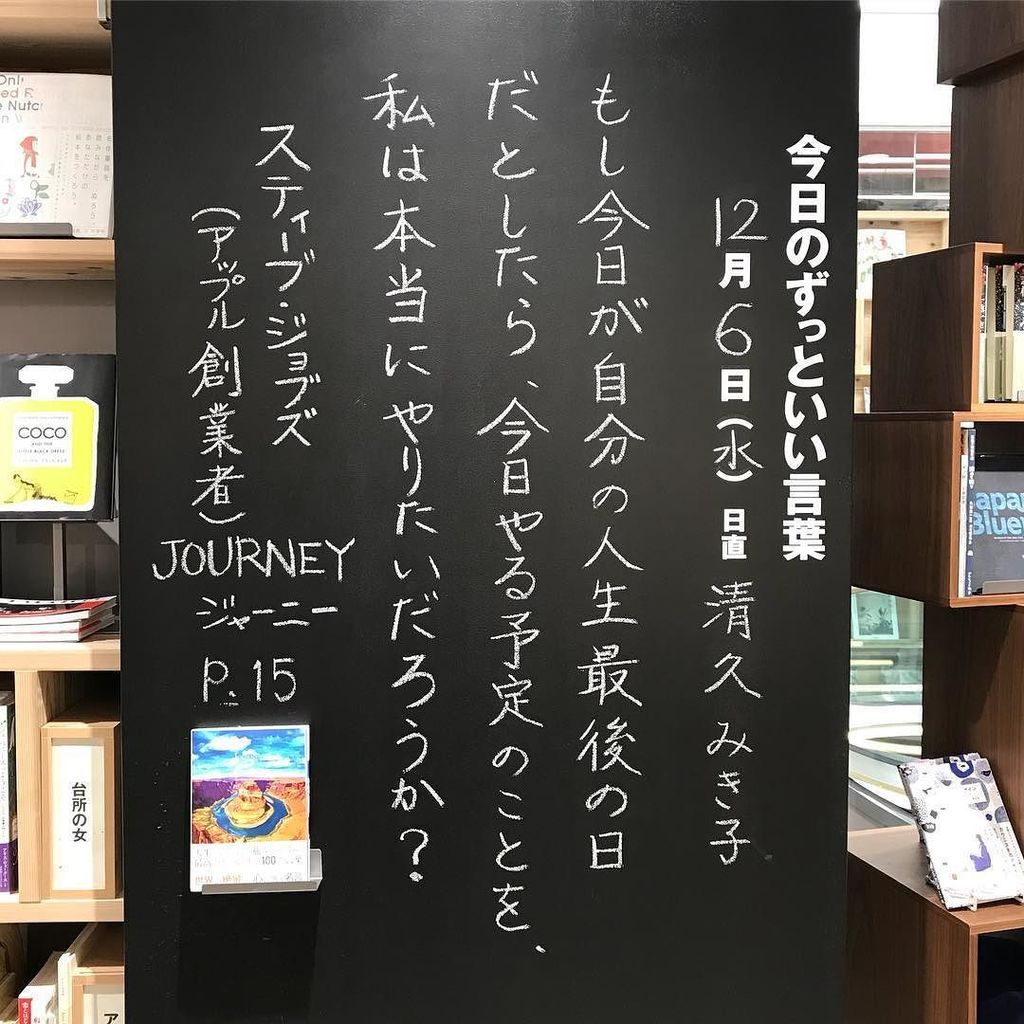 今日のずっといい言葉
12月6日(水) 日直 清久みき子
もし今日が自分の人生最後の日
だとしたら、今日やる予定のことを、
私は本当にやりたいだろうか？
スティーブ・ジョブズ
(アップル創業者)
JOURNEY
ジャーニー
P.15
COCO
AND THE
台所の女